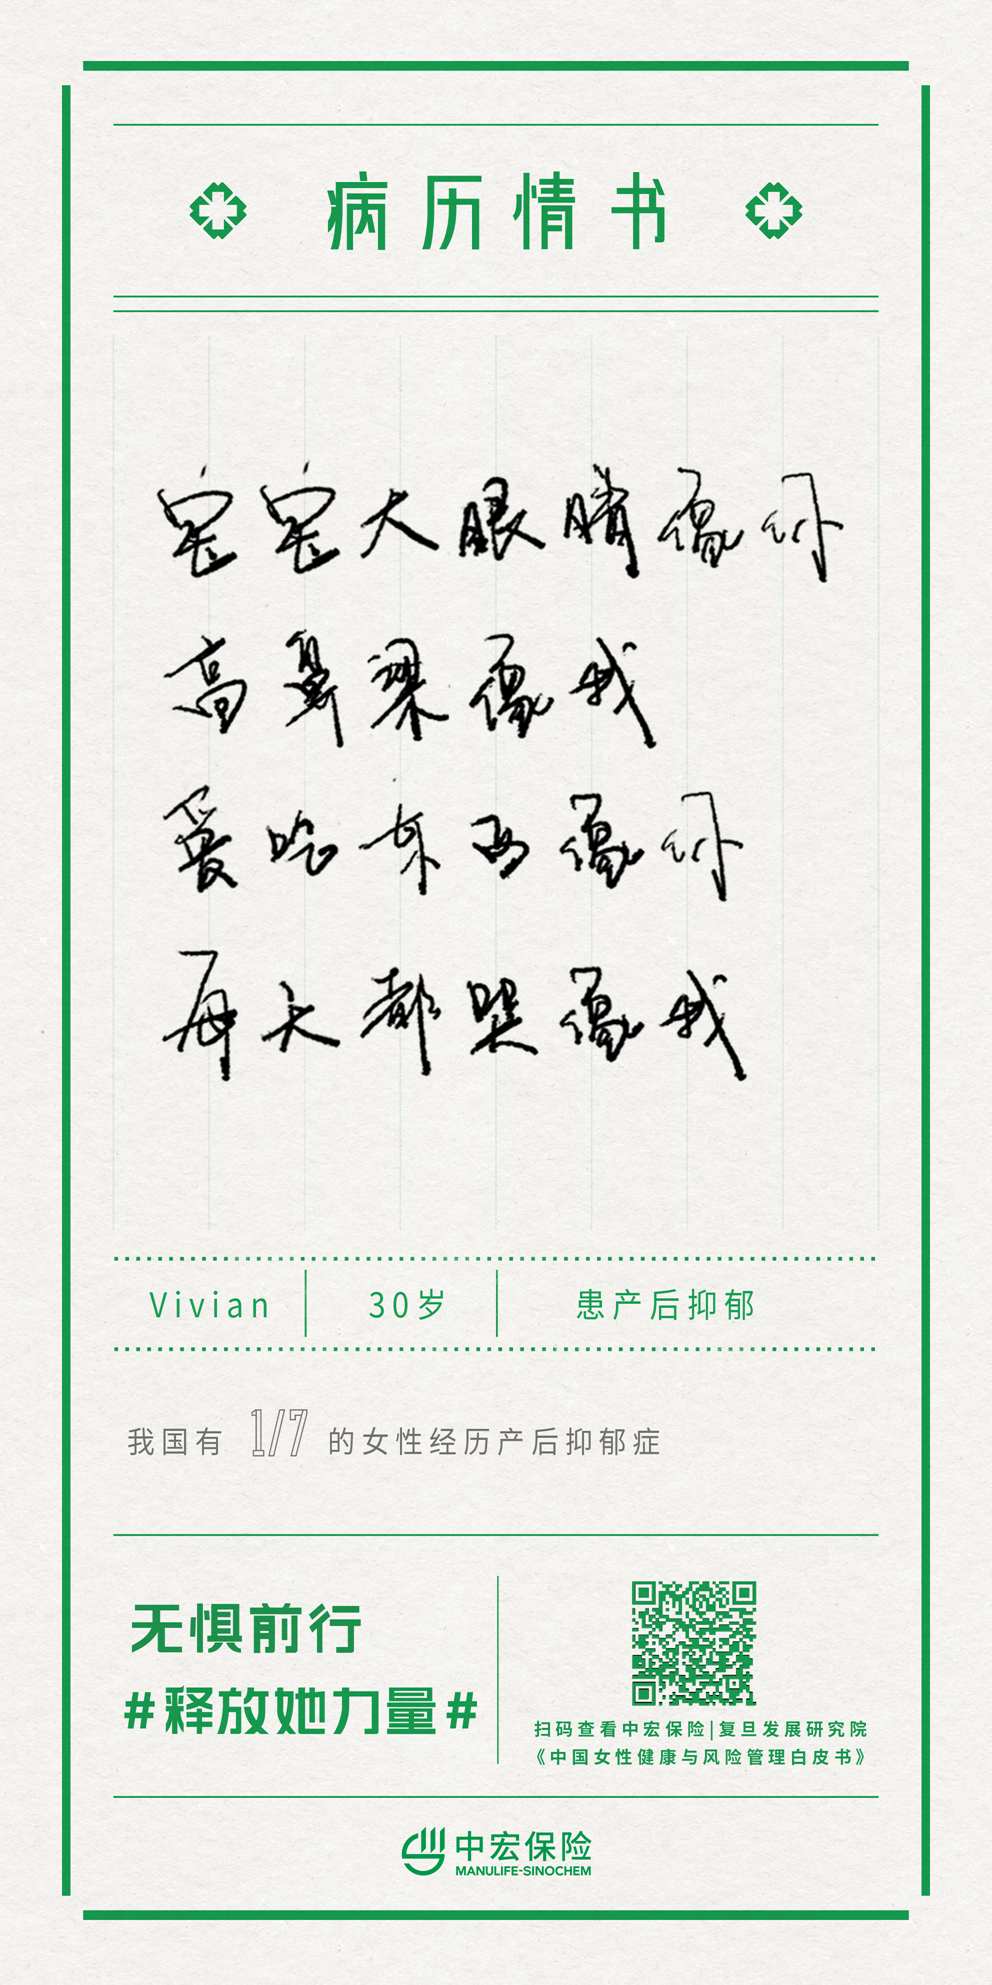 病历情书
宝宝大眼睛像你
高鼻梁像我
爱吃东西像你
每天都哭像我
Vivian
30岁
患产后抑郁
我国有 1/7 的女性经历产后抑郁症
无惧前行
#释放她力量#
扫码查看中宏保险|复旦发展研究院
《中国女性健康与风险管理白皮书》
中宏保险
MANULIFE-SINOCHEM